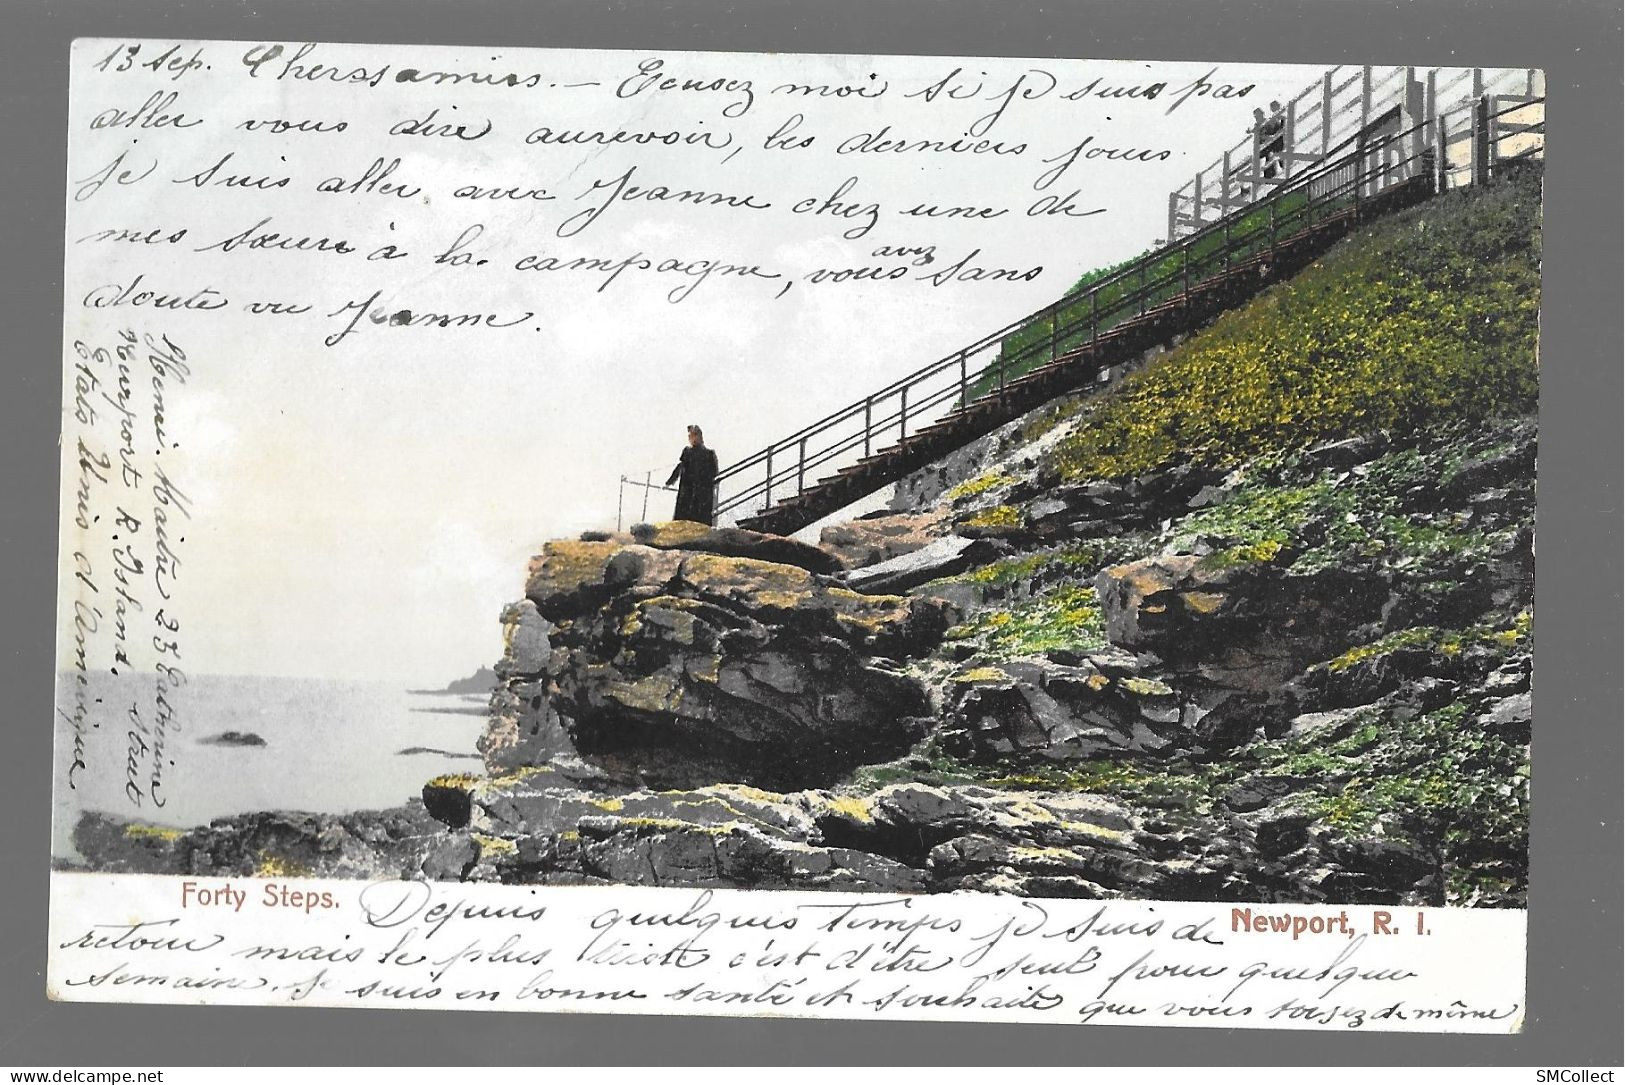 13 sep. Cherssamies. — Excusez moi si je suis pas
aller vous dire aurevoir, les derniers jours
je suis aller avec Jeanne chez une de
mes sœurs à la campagne, vous avez sans
doute vu Jeanne.
Henri. Maitre 23 Catherine Street
Newport R. Island.
Etats Unis d'Amérique
Forty Steps.
Newport, R. I.
Depuis quelques temps je suis de
retour mais le plus triste c'est d'être seul pour quelque
semaine. Je suis en bonne santé et souhaite que vous soyez de même
SMCollect